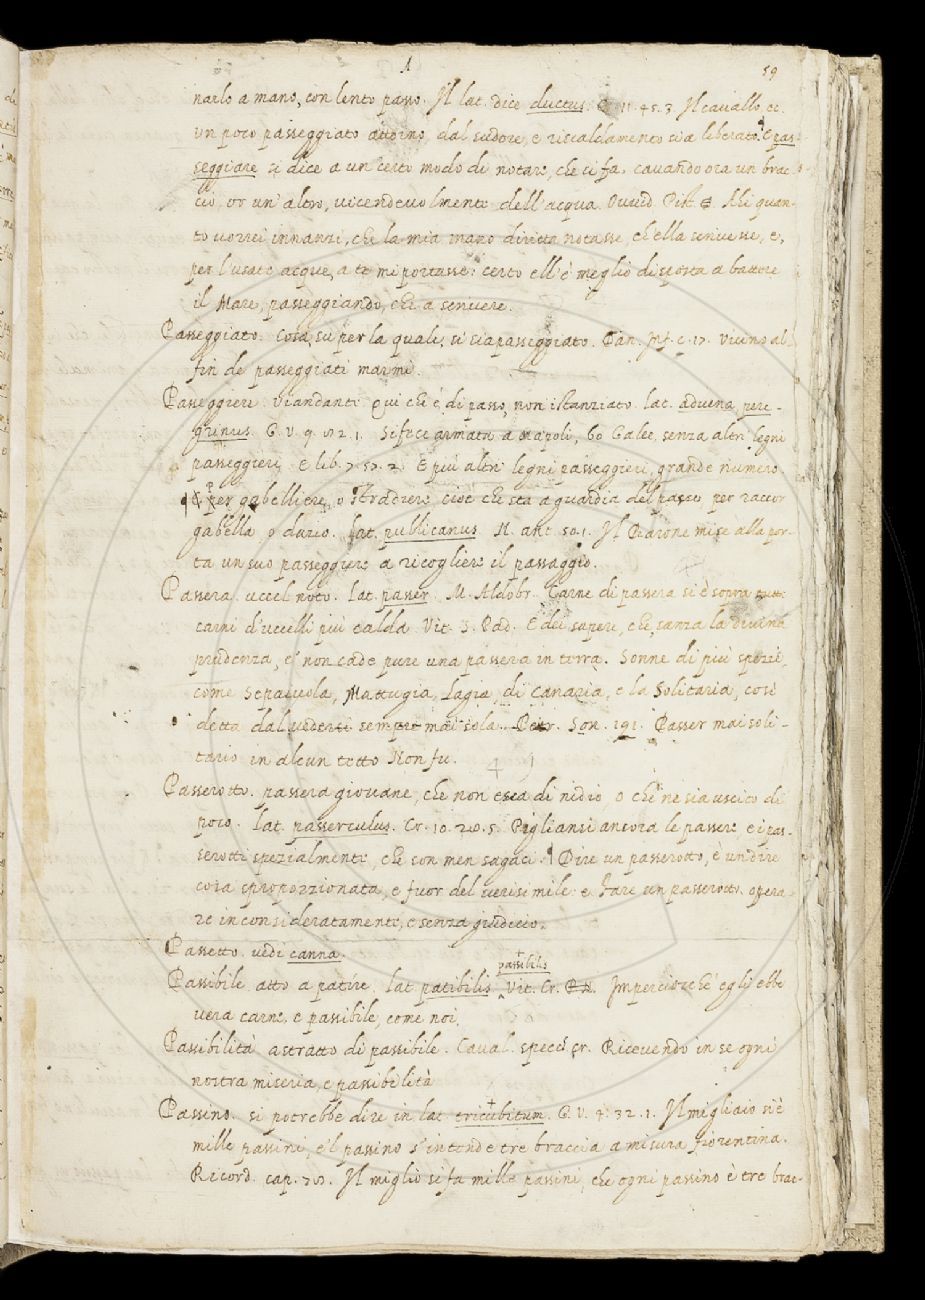 59
narlo a mano, con lento passo. Il lat. dice ductus. C. 11. 45. 3. Il cavallo, ec.
un poco passeggiato attorno, dal sudore, e riscaldamento sia liberato. E pas-
seggiare si dice a un certo modo di notare, che si fa, cavando ora un brac-
cio, or un' altro, vicendevolmente dell'acqua. Ovvid. Pist. Ahi quan-
to vorrei innanzi, che la mia mano diritta notasse, ch'ella scrivesse, e,
per l'usate acque, a te mi portasse: certo ell'è meglio disposta a battere
il Mare, passeggiando, che a scrivere.
Passeggiato. Cosa, su per la quale, si sia passeggiato. Dan. Inf. c. 17. Vicino al
fin de passeggiati marmi.
Passeggiere. Viandante. Qui che è di passo, non istanziato. lat. advena, pere-
grinus. G. V. 9. 2. 1. Si fece armata a Napoli, 60 Galee, senza altri legni
passeggieri. E lib. 7. 57. 2. E più altri legni passeggieri, grande numero.
per gabelliere, o Stradiere, cioè che sta a guardia del passo per raccor
gabella, o dazio. Lat. publicanus. N. ant. 50. 1. Il Barone mise alla por-
ta un suo passeggiere a ricogliere il passaggio.
Passera. uccel noto. lat. passer. M. Aldobr. Carne di passera si è sopra tutte
carni d'uccelli più calda. Vit. S. Pad. E dei sapere, che, sanza la divina
prudenza, e' non cade pure una passera in terra. Sonne di più spezie,
come Sepaiuola, Mattugia, Lagia, di Canaria, e la Solitaria, così
detta dal vedersi sempre mai sola. Petr. Son. 191. Passer mai soli-
tario in alcun tetto Non fu.
Passerotto. passera giovane, che non esca di nidio, o che ne sia uscito di
poco. lat. passerculus. Cr. 10. 20. 5. Pigliansi ancora le passere e i pas-
serotti spezialmente, che son men sagaci. Dire un passerotto, è un dire
cosa sproporzionata, e fuor del verisimile: e Fare un passerotto. opera-
re inconsideratamente, e senza giudicio.
Passetto. vedi canna.
passibilis
Passibile. atto a patire. lat. patibilis. Vit. Cr. Imperciocchè egli ebbe
vera carne, e passibile, come noi.
Passibilità astratto di passibile. Caval. specc. cr. Ricevendo in se ogni
nostra miseria, e passibilità
Passino. si potrebbe dire in lat. tricubitum. G. V. 4. 32. 1. Il migliaio si è
mille passini, e 'l passino s'intende tre braccia a misura fiorentina.
Ricord. cap. Il miglio si fa mille passini, che ogni passino è tre brac-